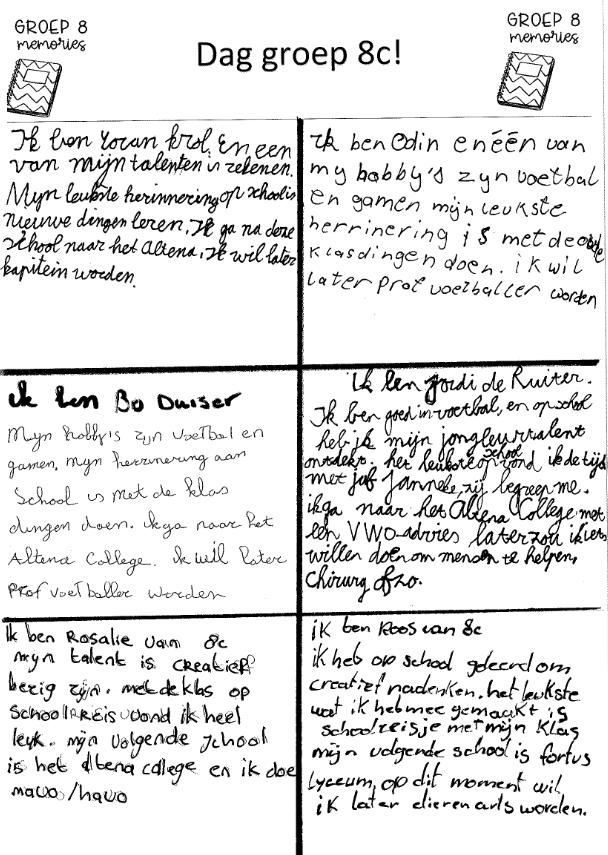 GROEP 8
memories
Dag groep 8c!
GROEP 8
memories
Ik ben Yoran Krol. En een
van mijn talenten is rekenen.
Mijn leukste herinnering op school is
nieuwe dingen leren. Ik ga na deze
school naar het Altena. Ik wil later
kapitein worden.
ik ben Odin en één van
my hobby's zyn voetbal
en gamen mijn leukste
herrinering is met de
klas dingen doen. ik wil
later prof voetballer worden
ik ben Bo Duiser
Mijn hobby's zijn voetbal en
gamen, mijn herrinering aan
School is met de klas
dingen doen. ik ga naar het
Altena College. Ik wil later
Prof voetballer worden
Ik ben Jordi de Ruiter.
Ik ben goed in voetbal, en op school
heb ik mijn jongleurtalent
ontdekt. het leukste op school vond ik de tijd
met juf Janneke, zij begreep me.
ik ga naar het Altena College met
een VWO-advies later zou ik iets
willen doen om mensen te helpen,
chirurg ofzo.
ik ben Rosalie van 8c
mijn talent is creatief
bezig zijn. met de klas op
schoolreis vond ik heel
leuk. mijn volgende school
is het Altena college en ik doe
mavo/havo
ik ben Roos van 8c
ik heb op school geleerd om
creatief nadenken. het leukste
wat ik heb mee gemaakt is
schoolreisje met mijn klas
mijn volgende school is fortus
lyceum, op dit moment wil
ik later dierenarts worden.